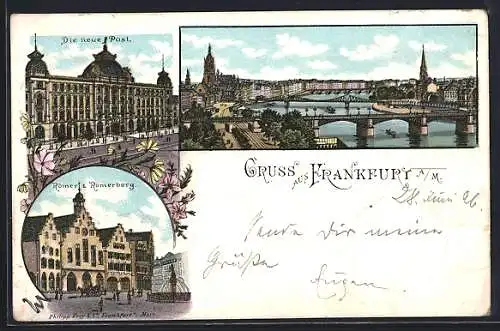 Die neue Post.
GRUSS AUS FRANKFURT A/M.
Römer & Römerberg.
28. Juni 96
Sende Dir meine
Grüße
Eugen
Philipp Frey & Co. Frankfurt a. Main.